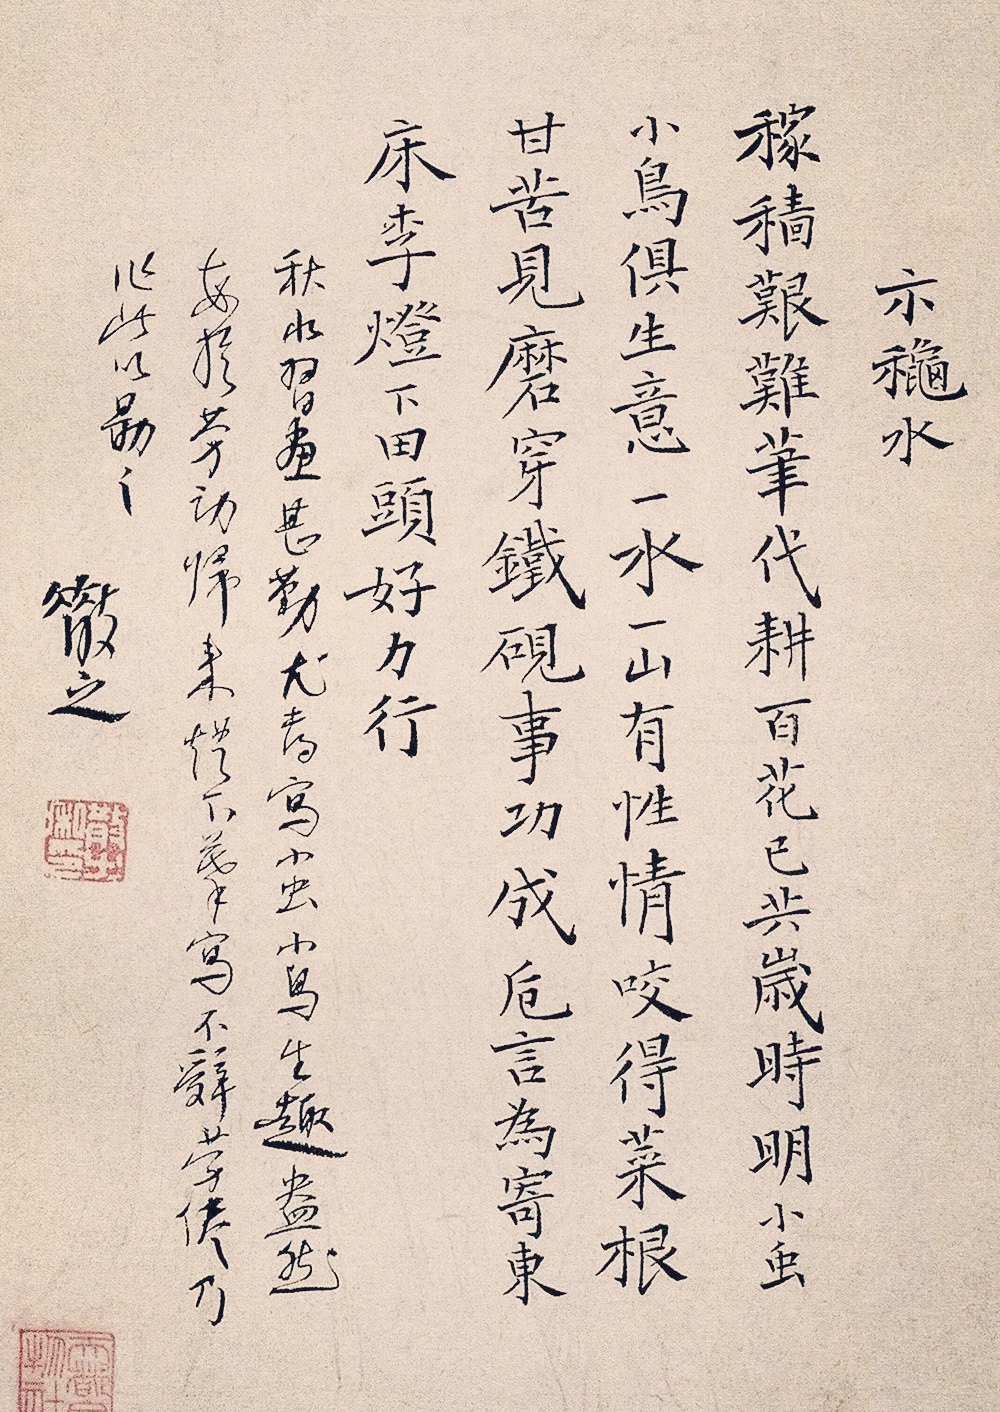 示龝水
稼穡艱難筆代耕百花已共歲時明小虫
小鳥俱生意一水一山有性情咬得菜根
甘苦見磨穿鐵硯事功成卮言為寄東
床季燈下田頭好力行
秋水習畫甚勤尤喜寫小虫小鳥生趣盎然
每於勞動歸來燈下摹寫不辭勞倦乃
作此以勖之
散之